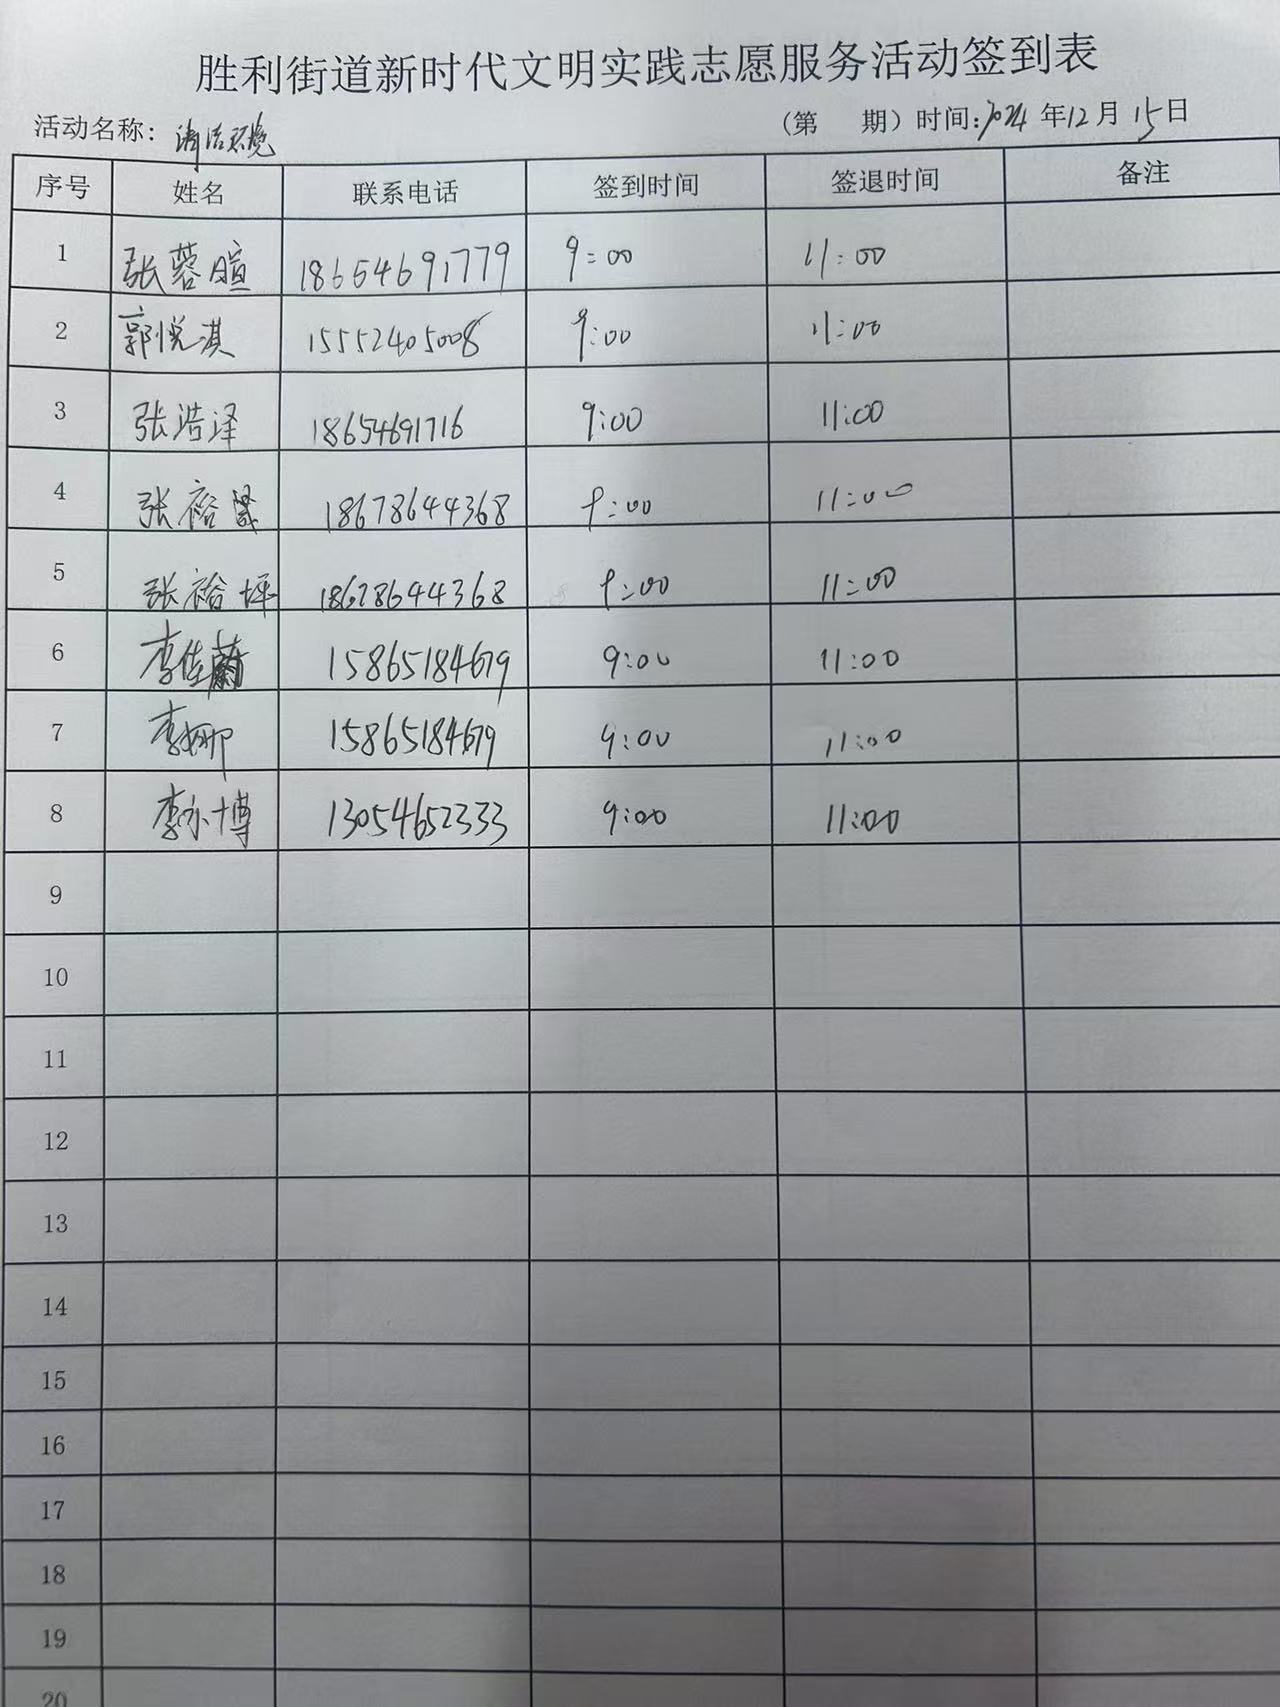 胜利街道新时代文明实践志愿服务活动签到表
活动名称：清洁环境 （第 期）时间：2024年12月15日
序号 姓名 联系电话 签到时间 签退时间 备注
1 张蓉暄 18654691779 9:00 11:00
2 郭悦淇 15552405008 9:00 11:00
3 张浩泽 18654691716 9:00 11:00
4 张裕 18678644368 9:00 11:00
5 张裕坪 18678644368 9:00 11:00
6 李佳蔚 15865184679 9:00 11:00
7 李娜 15865184679 9:00 11:00
8 李永博 13054652333 9:00 11:00
9
10
11
12
13
14
15
16
17
18
19
20